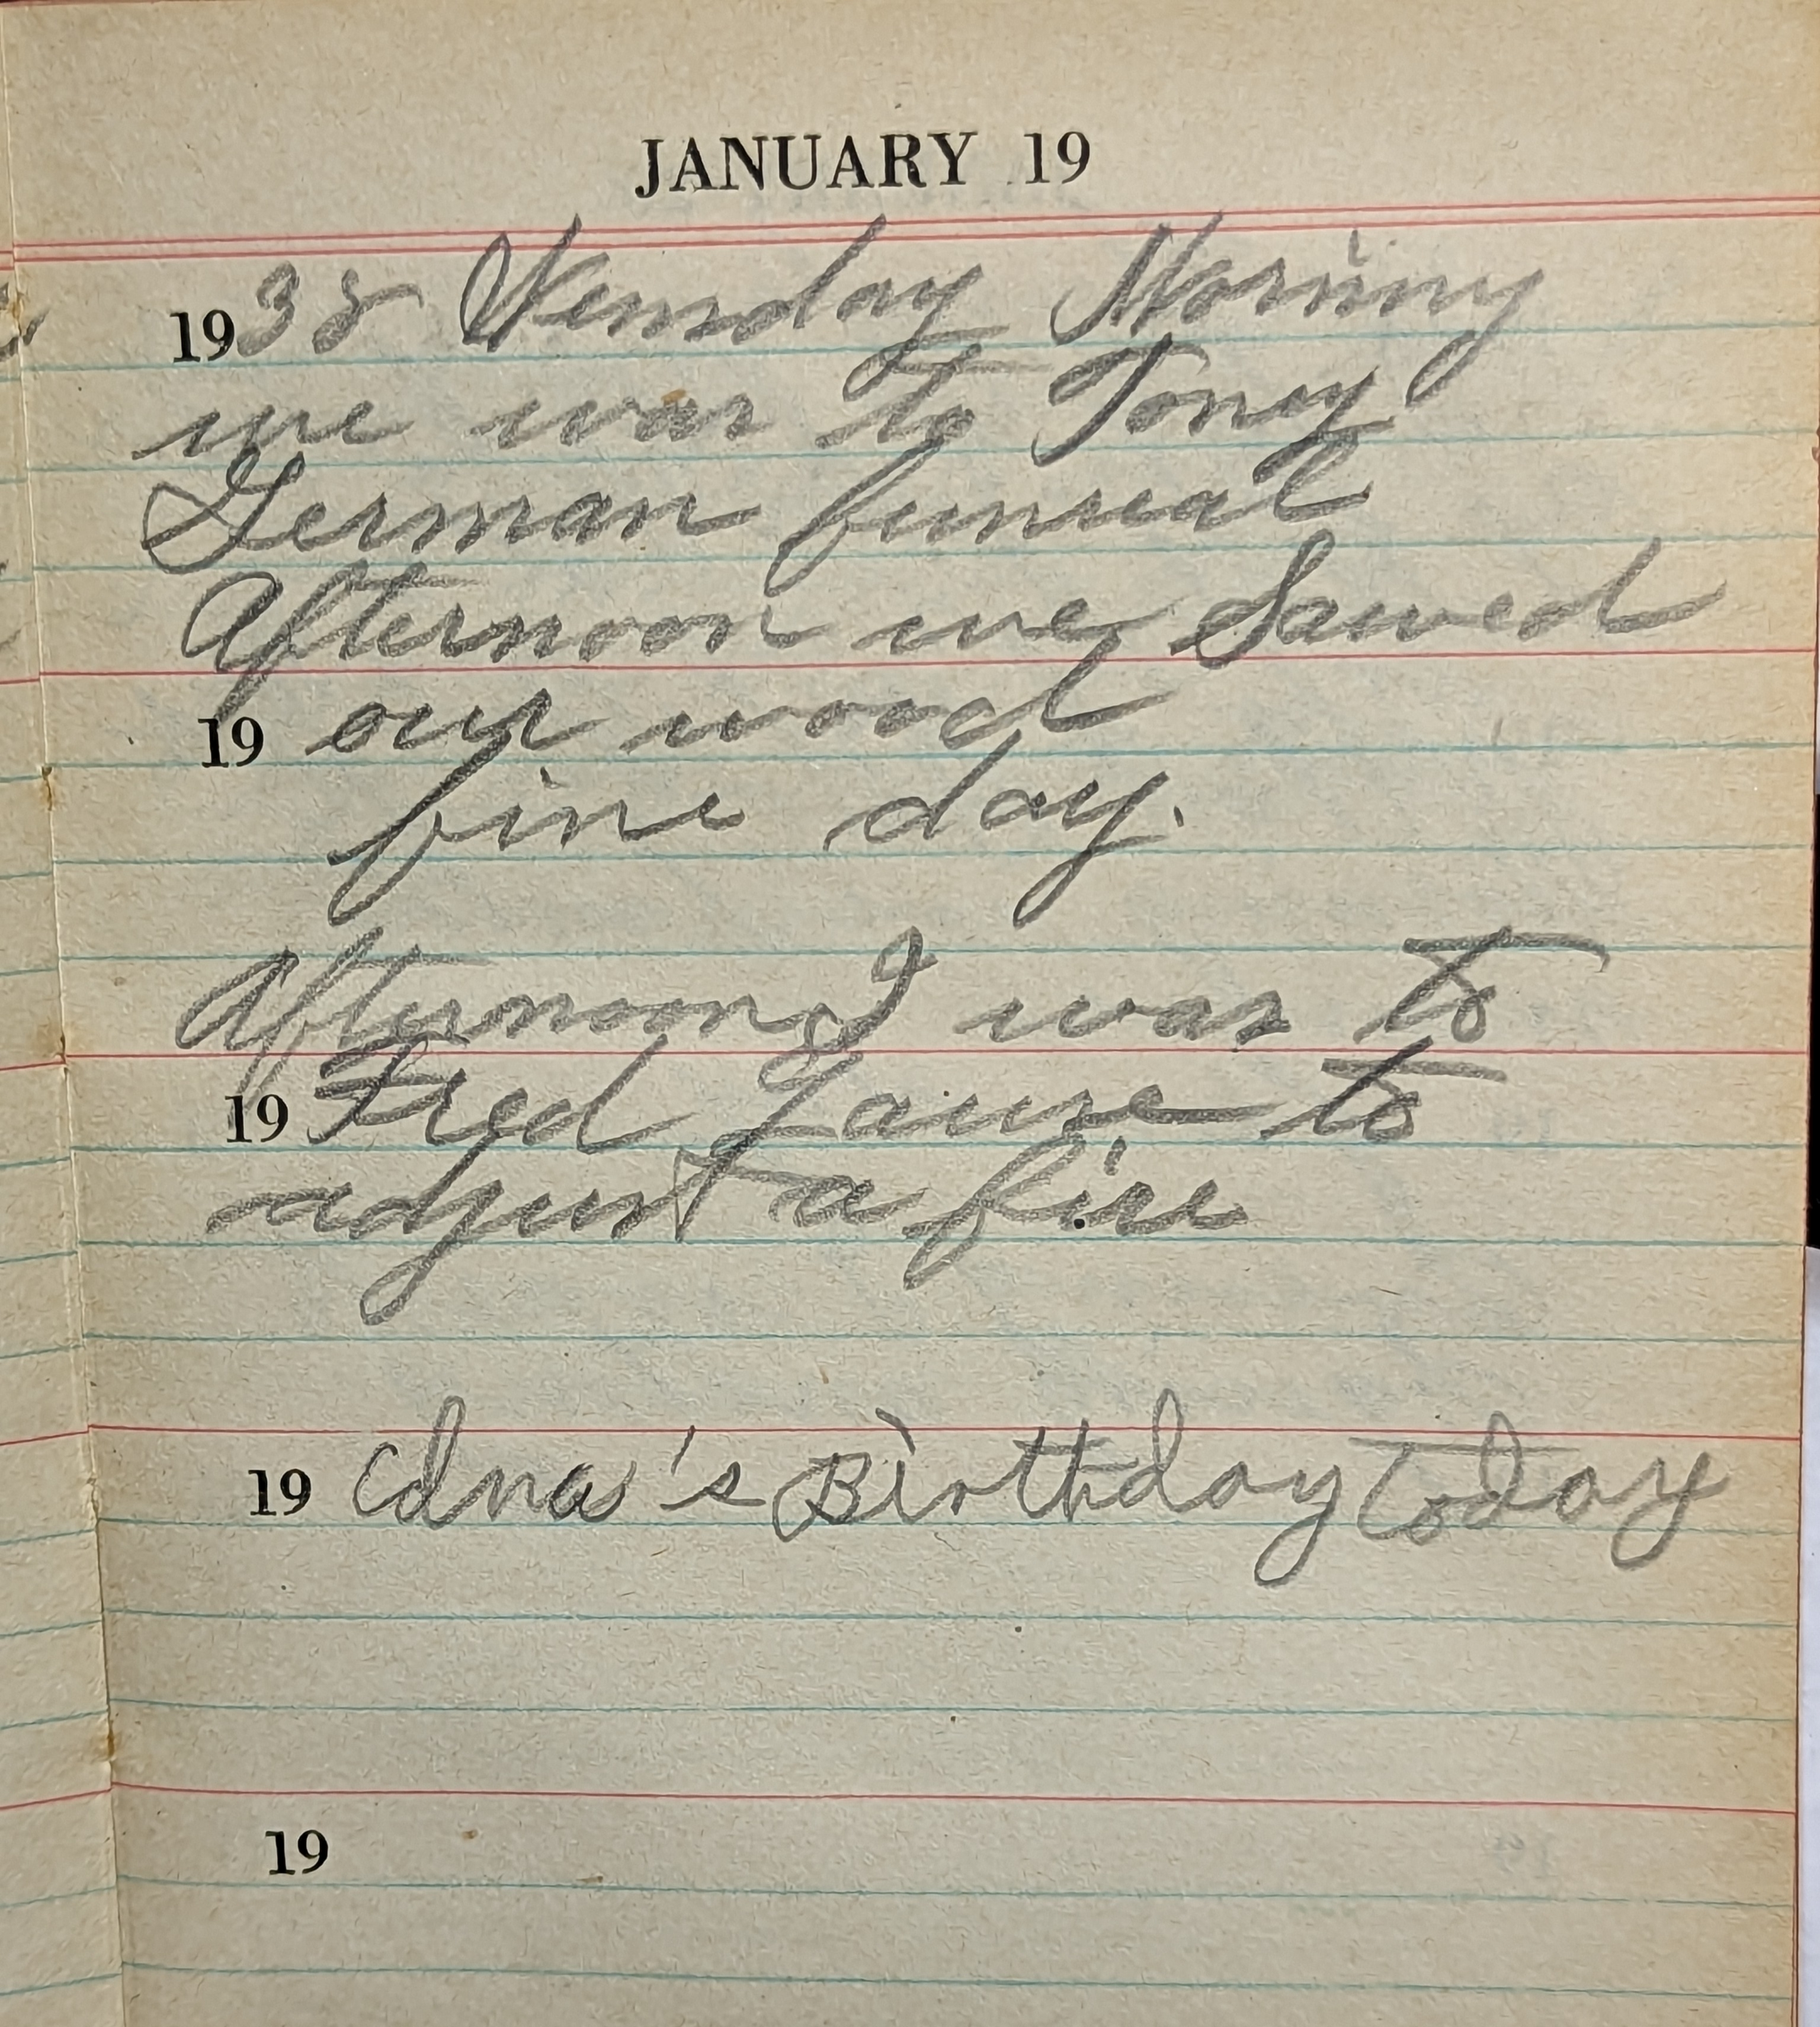 JANUARY 19
1938 Wensday Morning
we was to Toney
German funeral
Afternoon we Sawed
19 our wood
fine day.
Afternoon I was to
19 Fred to
adjust a fire
19 Edna's Birthday Today
19